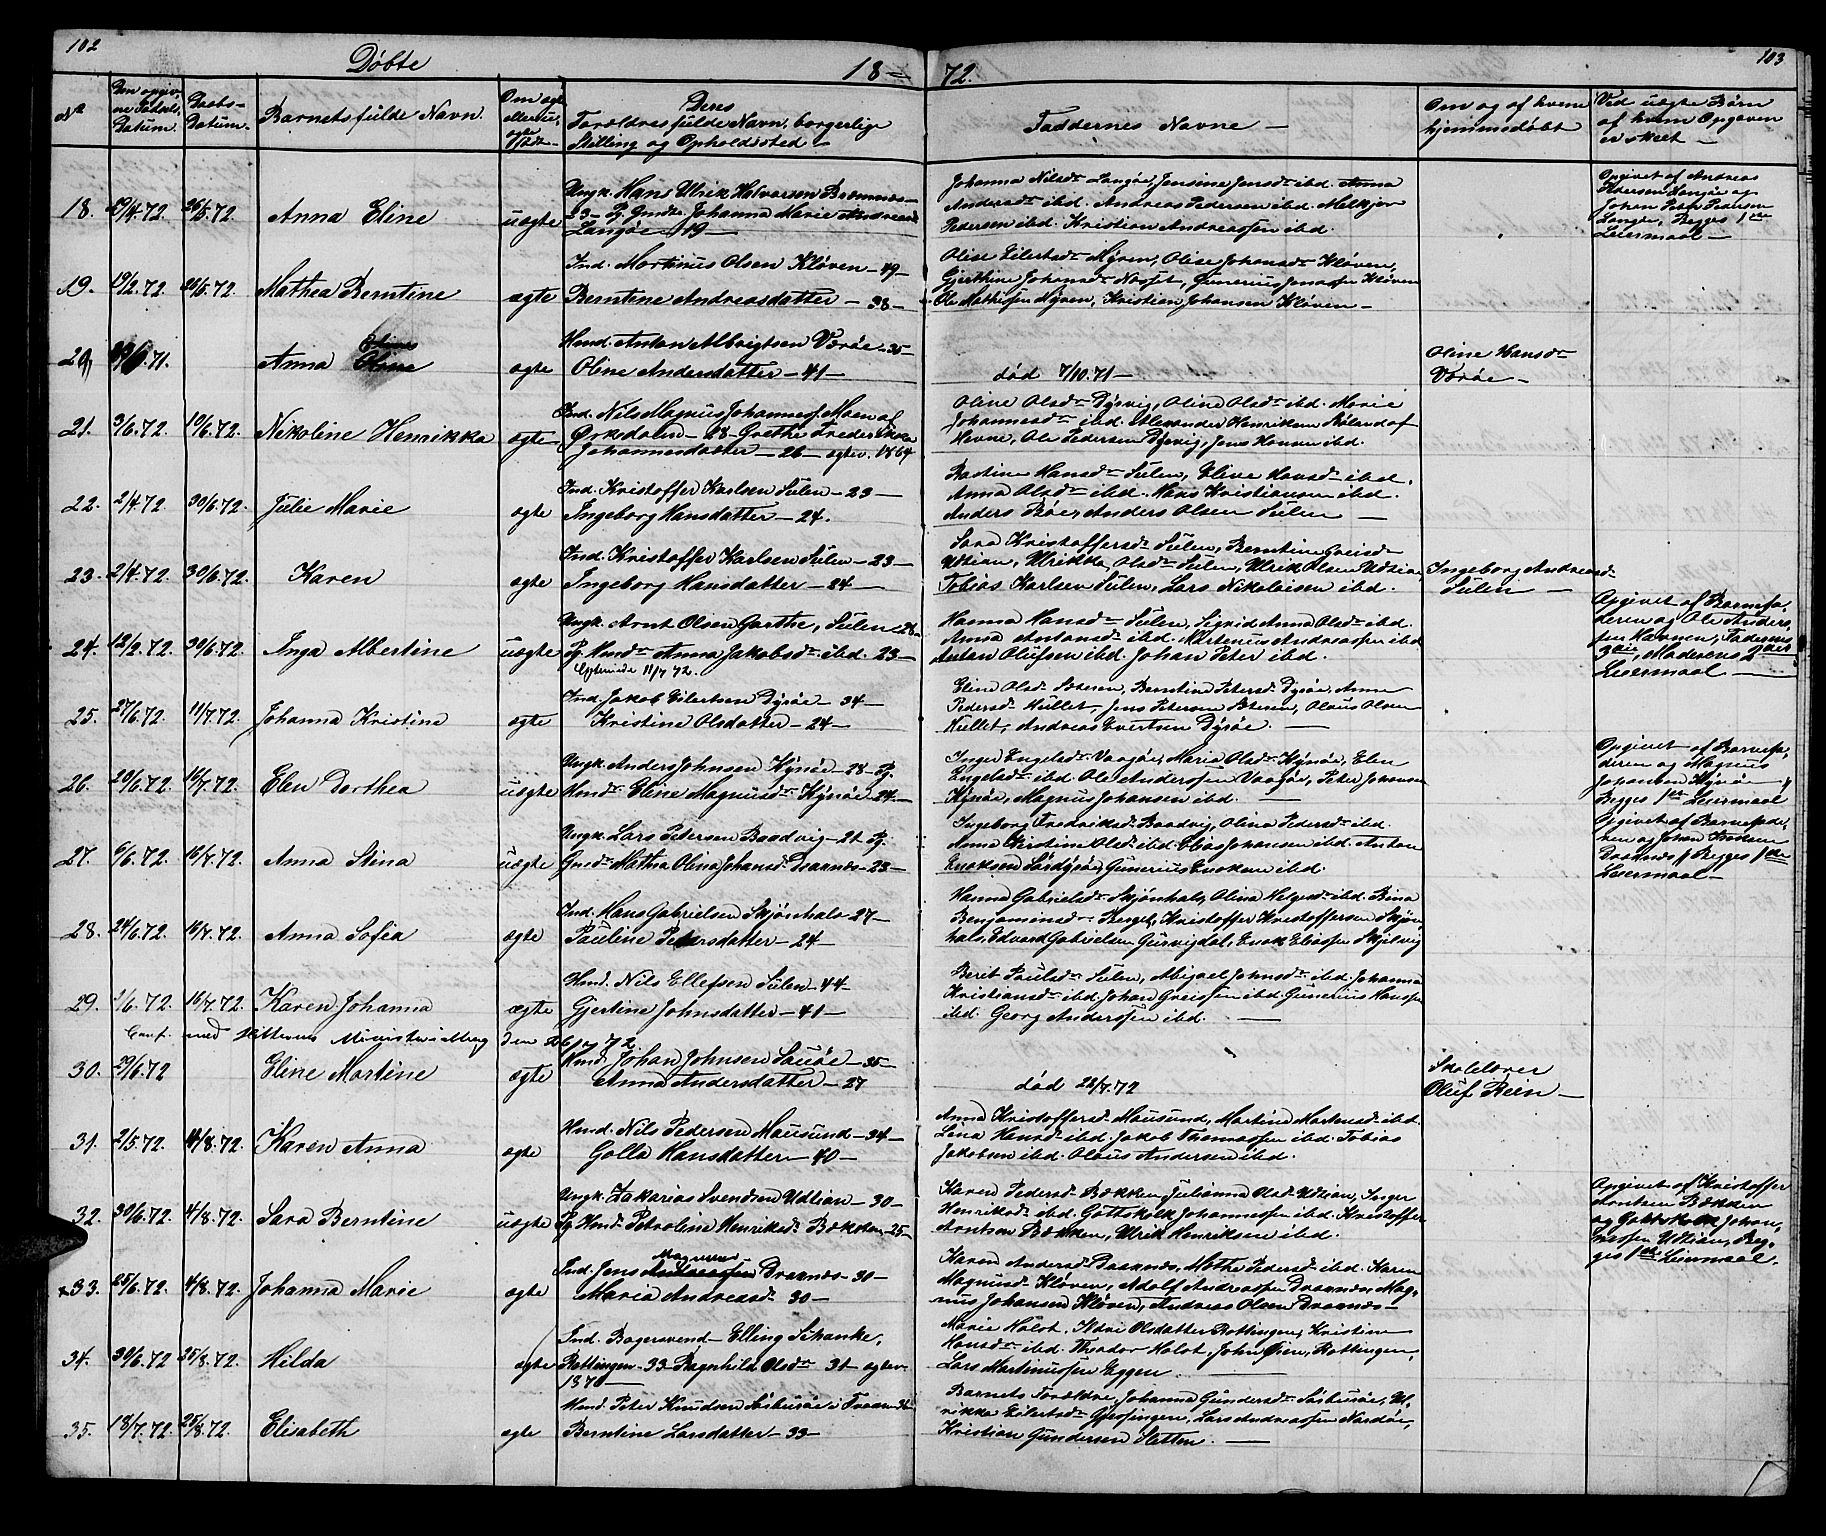 102
Døbte
18
72.
103
No
Den opgivne Fødsels Datum.
Daabs-Datum.
Barnets fulde Navn.
Om ægte eller uægte Født
Deres
Forældres fulde Navn, borgerlige
Stilling og Opholdssted
Faddernes Navne
Om og af hvem
hjemmedøbt
Ved uægte Børn
af hvem Opgaven
er skeet
18. 19/4.72. 26/5.72. Anna Eline uægte
Ungk. Hans Ulrik Halvorsen
23 Pg. Johanna Marie Andreasd
Langøe 19
Johanna Nilsdr Langøe, Jensine Jensdr ibd. Anna
Andreasdr ibd. Andreas Pedersen ibd. Melkjor
Pedersen ibd. Kristian Andreassen ibd.
Opgivet af Andreas
Pedersen Langøe og
Johan Peder Pedersen
Langøe, Begges 1ste
Leiermaal
19. 19/2.72. 26/5.72. Mathea Berntine ægte
Ind. Martinus Olsen Kløven 49
Berntine Andreasdatter 38
Olise Eilertsdr Myren, Olise Johansdr Kløven,
Gjertine Johansdr, Gunerius Jenssen Kløven
Ole Mathisen Myren, Kristian Johansen Kløven
20. 71. Anna Oline ægte
Hmd. Anton Albrigtsen Værøe 35
Oline Andersdatter 41
død 7/10.71
Oline Hansdr
Værøe
21. 3/6.72. 19/6.72. Nikoline Henrikka ægte
Ind. Nils Magnus Johannes. Moen af
Ørkedalen 28 Grethe Frederikka
Johannesdatter 26 ægtev. 1864
Oline Olsdr Dyrvig, Oline Olsdr ibd. Marie
Johannesdr ibd. Alexander Henriksen af
Hevne, Ole Pedersen Dyrvig, Jens Hansen ibd.
22. 2/4.72 30/6.72. Julie Marie ægte
Ind. Kristoffer Karlsen Sulen 23
Ingeborg Hansdatter 24.
Bastine Hansdr Sulen, Eline Hansdr ibd.
Anna Olsdr ibd. Hans Kristiansen ibd.
Anders Anders Olsen Sulen
23. 2/4.72. 30/6.72. Karen ægte
Ind. Kristoffer Karlsen Sulen 23
Ingeborg Hansdatter 24
Sara Kristoffersdr Sulen, Berntine Greisdr
Udtian, Ulrikka Olsdr Sulen, Ulrik Olsen Udtian
Tobias Karlsen Sulen, Lars Nikolaisen ibd.
Ingeborg Andreasdr
Sulen
24. 12/2.72 30/6.72. Inga Albertine uægte
Ungk. Arnt Olsen Garthe, Sulen 26
Pg. Hmdr Anna Jakobsdr ibd. 23
Egteviede 11/7 72.
Hanna Hansdr Sulen, Sigrid Anna Olsdr ibd.
Anna Antonsdr ibd. Martenus Andreassen ibd
Antan Olufsen ibd. Johan Peter ibd.
Opgivet af Barnefaderen
og Ole Andersen
Havnen, Faderens
3die, Moderens 2det
Leiermaal
25. 27/6.72. 11/7.72. Johanna Kristine ægte
Ind. Jakob Eilertsen Dyrøe 34
Kristine Olsdatter 24
Eline Olsdr Sætesen, Berntine Petersdr Dyrøe, Anne
Pedersdr Hullet, Jens Petersen Olaus Olsen
Hullet, Andreas Evertsen Dyrøe.
26. 20/6.72. 16/7.72. Elen Dorthea uægte
Ungk. Anders Johnsen Kynøe 28. Pg.
Hmdr Eline Magnusdr Kynøe 24
Inger Engelsdr Vaagøe, Maria Olsdr Kynøe, Elen
Engelsdr ibd. Ole Anderssen Vaagøe, Peter Johansen
Kynøe, Magnus Johansen ibd.
Opgivet af Barnefaderen
og Magnus
Johansen Kynøe
Begges 1ste Leiermaal
27. 6/6.72. 16/7.72. Anna Stina uægte
Ungk. Lars Petersen Baadvig 21 Pg.
Gmdr Mathea Olina Johansdr Draanæs 23
Ingeborg Fredriksdr Baadvig, Olina Pedersdr ibd.
Anna Kirstine Olsdr ibd. Elias Johansen ibd. Anton
Enoksen Sørdyrøe, Gunerius Enoksen ibd.
Opgivet af Barnefaderen
og Johan
Draanæs, Begges 1ste
Leiermaal
28. 24/6.72. 16/7.72. Anna Sofia ægte
Ind. Hans Gabrielsen Skjønhals 27
Pauline Petersdatter 24
Hanna Gabrielsdr Skjønhals, Olina Helgesdr ibd. Bina
Benjaminsdr Berget, Kristoffer Kristoffersen Skjønhals,
Edvard Gabrielsen Gurvigdal, Enok Eliassen Skjelvig
29. 1/6.72. 16/7.72. Karen Johanna ægte
Hmd. Nils Ellefsen Sulen 44
Gjertine Johnsdatter 41
Berit Paulsdr Sulen, Abigael Johnsdr ibd. Johanna
Kristiansdr ibd. Johan Greissen ibd. Gunerius Hanssen
ibd. Georg Anderssen ibd.
Conf. med Hitterens Ministerialbog den 26/7 72
30. 29/6.72 Eline Martine ægte
Hmd. Johan Johnsen Sauøe 35
Anna Andersdatter 27
død 22/7.72
Skolelærer
Oluf Rein
31. 2/5.72. 4/8.72. Karen Anna ægte
Hmd. Nils Pedersen Mausund 34
Golla Hansdatter 40
Anna Kristoffersdr Mausund, Martina Martensdr ibd.
Lina Hansdr ibd. Jakob Thomassen ibd. Tobias
Jakobsen ibd. Olaus Andersen ibd.
32. 30/6.72. 4/8.72. Sara Berntine uægte
Ungk. Zakarias Svendsen Udtian 30
Pg. Hmdr Petroline Henriksdr Bækken 25
Karen Pedersdr Bækken, Julianna Olsdr Udtian, Inger
Henriksdr ibd. Gottskolk Johannessen ibd. Kristoffer
Arntsen Bækken, Ulrik Henriksen ibd.
Opgivet af Kristoffer
Arntsen Bækken
og Gottskolk Johannessen
Udtian, Begges
1ste Leiermaal.
33. 25/6.72. 4/8.72. Johanna Marie ægte
Ind. Jens Magnus Andreassen Draanæs 30
Maria Andreasdr 30
Karen Andersdr Draanæs, Mathe Pedersdr ibd. Karen
Magnusdr Kløven, Adolf Andreassen Draanæs, Magnus
Johansen Kløven, Andreas Olsen Draanæs
34. 30/6.72 25/8.72. Hilda ægte
Ind. Bagersvend Elling Schanke,
Rottingen 33 Ragnhild Olsdr 31 ægtev.
1870
Marie Holst, Olsdatter Rottingen, Kristine
Hansdr ibd. Theodor Holst, John Øien, Rottingen,
Lars Martinussen Eggen.
35. 18/7.72. 25/8.72. Elisabeth ægte
Hmd. Peter Knudsen Sørburøe i Froan 34
Berntine Larsdatter 33
Barnets Forældre, Johanna Gundersdr Sørburøe, Ulrikka
Eilertsdr Gjæsingen, Lars Andreassen Nordøe,
Kristian Gundersen Sletten.